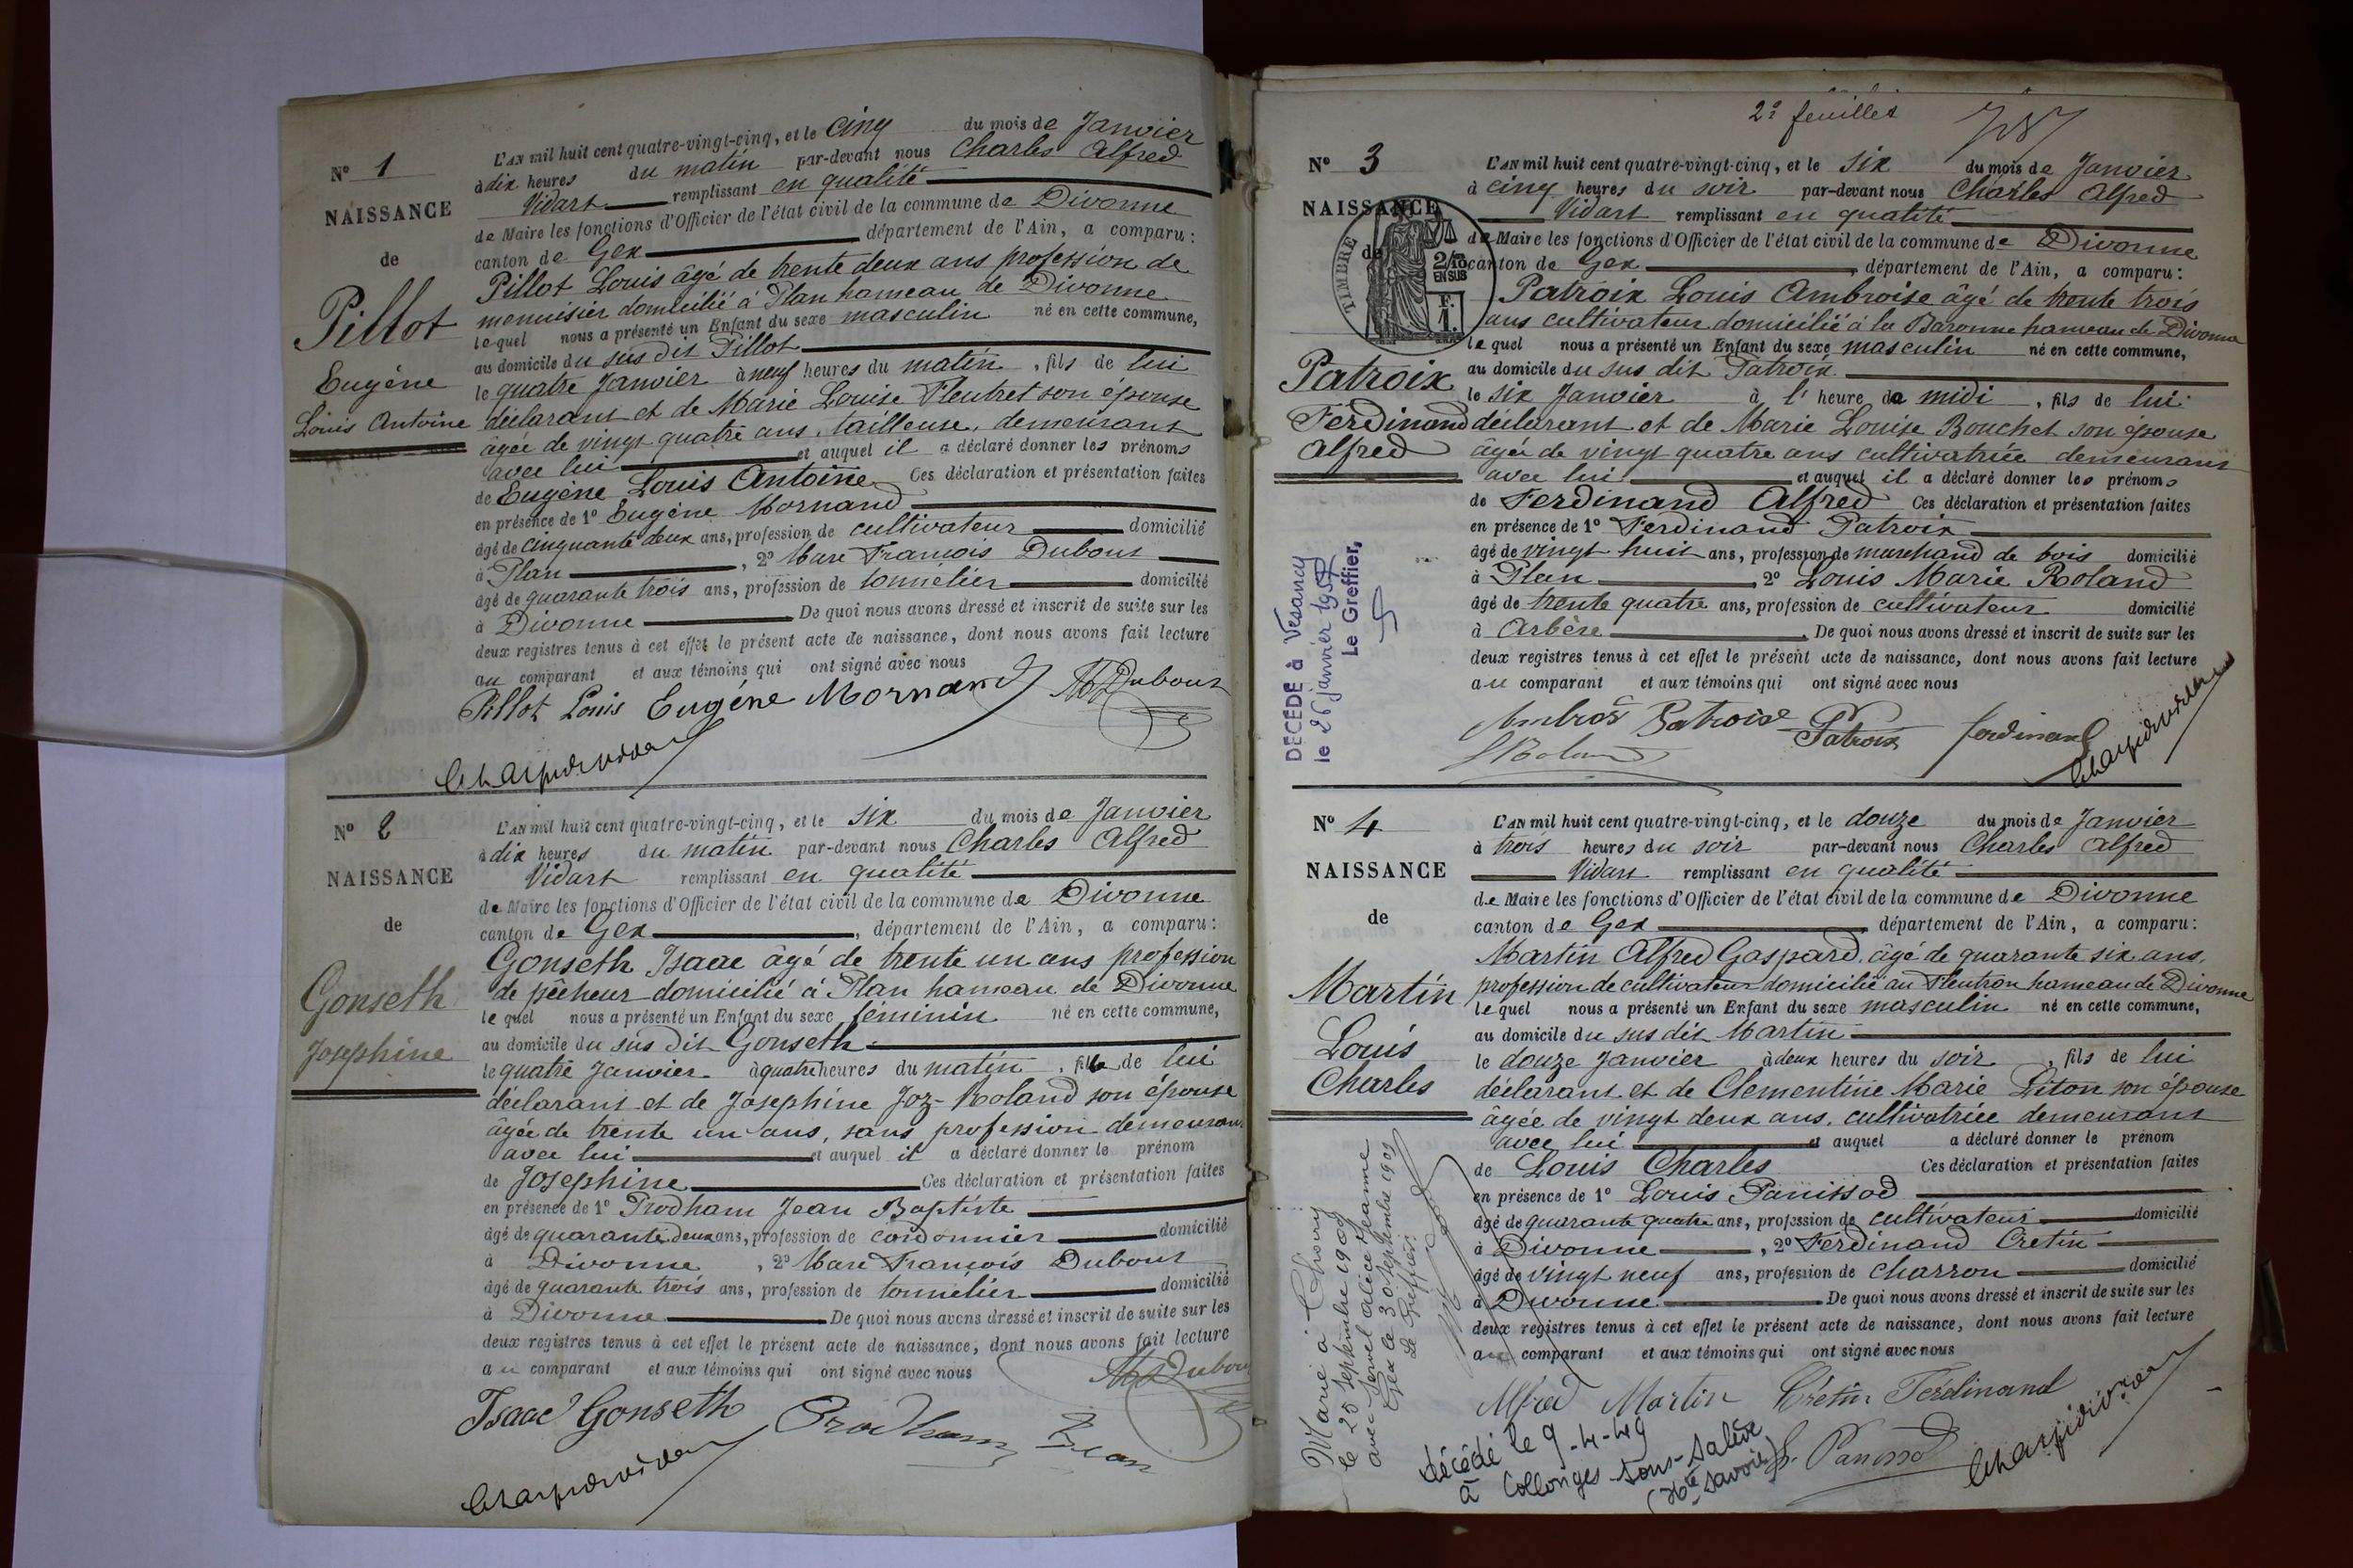 N° 1
NAISSANCE
de
Pillot
Eugène
Louis Antoine
L'AN mil huit cent quatre-vingt-cinq, et le cinq du mois de Janvier
à dix heures du matin par-devant nous Charles Alfred
Vidart remplissant en qualité
de Maire les fonctions d'Officier de l'état civil de la commune de Divonne
canton de Gex département de l'Ain, a comparu :
Pillot Louis âgé de trente deux ans profession de
menuisier domicilié à Plan hameau de Divonne
lequel nous a présenté un Enfant du sexe masculin né en cette commune,
au domicile du sus dit Pillot
le quatre Janvier à neuf heures du matin, fils de lui
déclarant et de Marie Louise Fleutret son épouse
âgée de vingt quatre ans, tailleuse, demeurant
avec lui et auquel il a déclaré donner les prénoms
de Eugène Louis Antoine Ces déclaration et présentation faites
en présence de 1° Eugène Mornand
âgé de cinquante deux ans, profession de cultivateur domicilié
à Plan, 2° Marc François Dubout
âgé de quarante trois ans, profession de tonnelier domicilié
à Divonne De quoi nous avons dressé et inscrit de suite sur les
deux registres tenus à cet effet le présent acte de naissance, dont nous avons fait lecture
au comparant et aux témoins qui ont signé avec nous
Pillot Louis Eugéne Mornand Dubout
N° 2
NAISSANCE
de
Gonseth
Josephine
L'AN mil huit cent quatre-vingt-cinq, et le six du mois de Janvier
à dix heures du matin par-devant nous Charles Alfred
Vidart remplissant en qualité
de Maire les fonctions d'Officier de l'état civil de la commune de Divonne
canton de Gex, département de l'Ain, a comparu :
Gonseth Isaac âgé de trente un ans profession
de pêcheur domicilié à Plan hameau de Divonne
lequel nous a présenté un Enfant du sexe féminin né en cette commune,
au domicile du sus dit Gonseth
le quatre Janvier à quatre heures du matin, fille de lui
déclarant et de Josephine Joz-Roland son épouse
âgée de trente un ans, sans profession demeurant
avec lui et auquel il a déclaré donner le prénom
de Josephine Ces déclaration et présentation faites
en présence de 1° Prodham Jean Baptiste
âgé de quarante deux ans, profession de cordonnier domicilié
à Divonne, 2° Marc François Dubout
âgé de quarante trois ans, profession de tonnelier domicilié
à Divonne De quoi nous avons dressé et inscrit de suite sur les
deux registres tenus à cet effet le présent acte de naissance, dont nous avons fait lecture
au comparant et aux témoins qui ont signé avec nous
Dubout
Isaac Gonseth Prodham Jean
2e feuillet
N° 3
NAISSANCE
de
TIMBRE
2/10
EN SUS
F.
1.
Patroix
Ferdinand
Alfred
DÉCÉDÉ à Vesancy
le 26 janvier
Le Greffier,
L'AN mil huit cent quatre-vingt-cinq, et le six du mois de Janvier
à cinq heures du soir par-devant nous Charles Alfred
Vidart remplissant en qualité
de Maire les fonctions d'Officier de l'état civil de la commune de Divonne
canton de Gex, département de l'Ain, a comparu :
Patroix Louis Ambroise âgé de trente trois
ans cultivateur domicilié à la Baronne hameau de Divonne
lequel nous a présenté un Enfant du sexe masculin né en cette commune,
au domicile du sus dit Patroix
le six Janvier à l' heure de midi, fils de lui
déclarant et de Marie Louise Bouchet son épouse
âgée de vingt quatre ans cultivatrice demeurant
avec lui et auquel il a déclaré donner les prénoms
de Ferdinand Alfred Ces déclaration et présentation faites
en présence de 1° Ferdinand Patroix
âgé de vingt huit ans, profession de marchand de bois domicilié
à Plan 2° Louis Marie Roland
âgé de trente quatre ans, profession de cultivateur domicilié
à Arbère. De quoi nous avons dressé et inscrit de suite sur les
deux registres tenus à cet effet le présent acte de naissance, dont nous avons fait lecture
au comparant et aux témoins qui ont signé avec nous
Patroix Ferdinand
N° 4
NAISSANCE
de
Martin
Louis
Charles
L'AN mil huit cent quatre-vingt-cinq, et le douze du mois de Janvier
à trois heures du soir par-devant nous Charles Alfred
Vidart remplissant en qualité
de Maire les fonctions d'Officier de l'état civil de la commune de Divonne
canton de Gex département de l'Ain, a comparu :
Martin Alfred Gaspard, âgé de quarante six ans,
profession de cultivateur domicilié au Fleutron hameau de Divonne
lequel nous a présenté un Enfant du sexe masculin né en cette commune,
au domicile du sus dit Martin
le douze Janvier à deux heures du soir, fils de lui
déclarant et de Clementine Marie Piton son épouse
âgée de vingt deux ans, cultivatrice demeurant
avec lui et auquel a déclaré donner le prénom
de Louis Charles Ces déclaration et présentation faites
en présence de 1° Louis Panissod
âgé de quarante quatre ans, profession de cultivateur domicilié
à Divonne, 2° Ferdinand Cretin
âgé de vingt neuf ans, profession de charron domicilié
à Divonne. De quoi nous avons dressé et inscrit de suite sur les
deux registres tenus à cet effet le présent acte de naissance, dont nous avons fait lecture
au comparant et aux témoins qui ont signé avec nous
Marié à Thoiry
le 25 septembre 1909
avec Servel Alice Jeanne
Gex le 30 septembre 1909
Le Greffier:
Alfred Martin Crétin Ferdinand
décédé le 9-4-49
à Collonges-sous-Salève
(Hte Savoie)